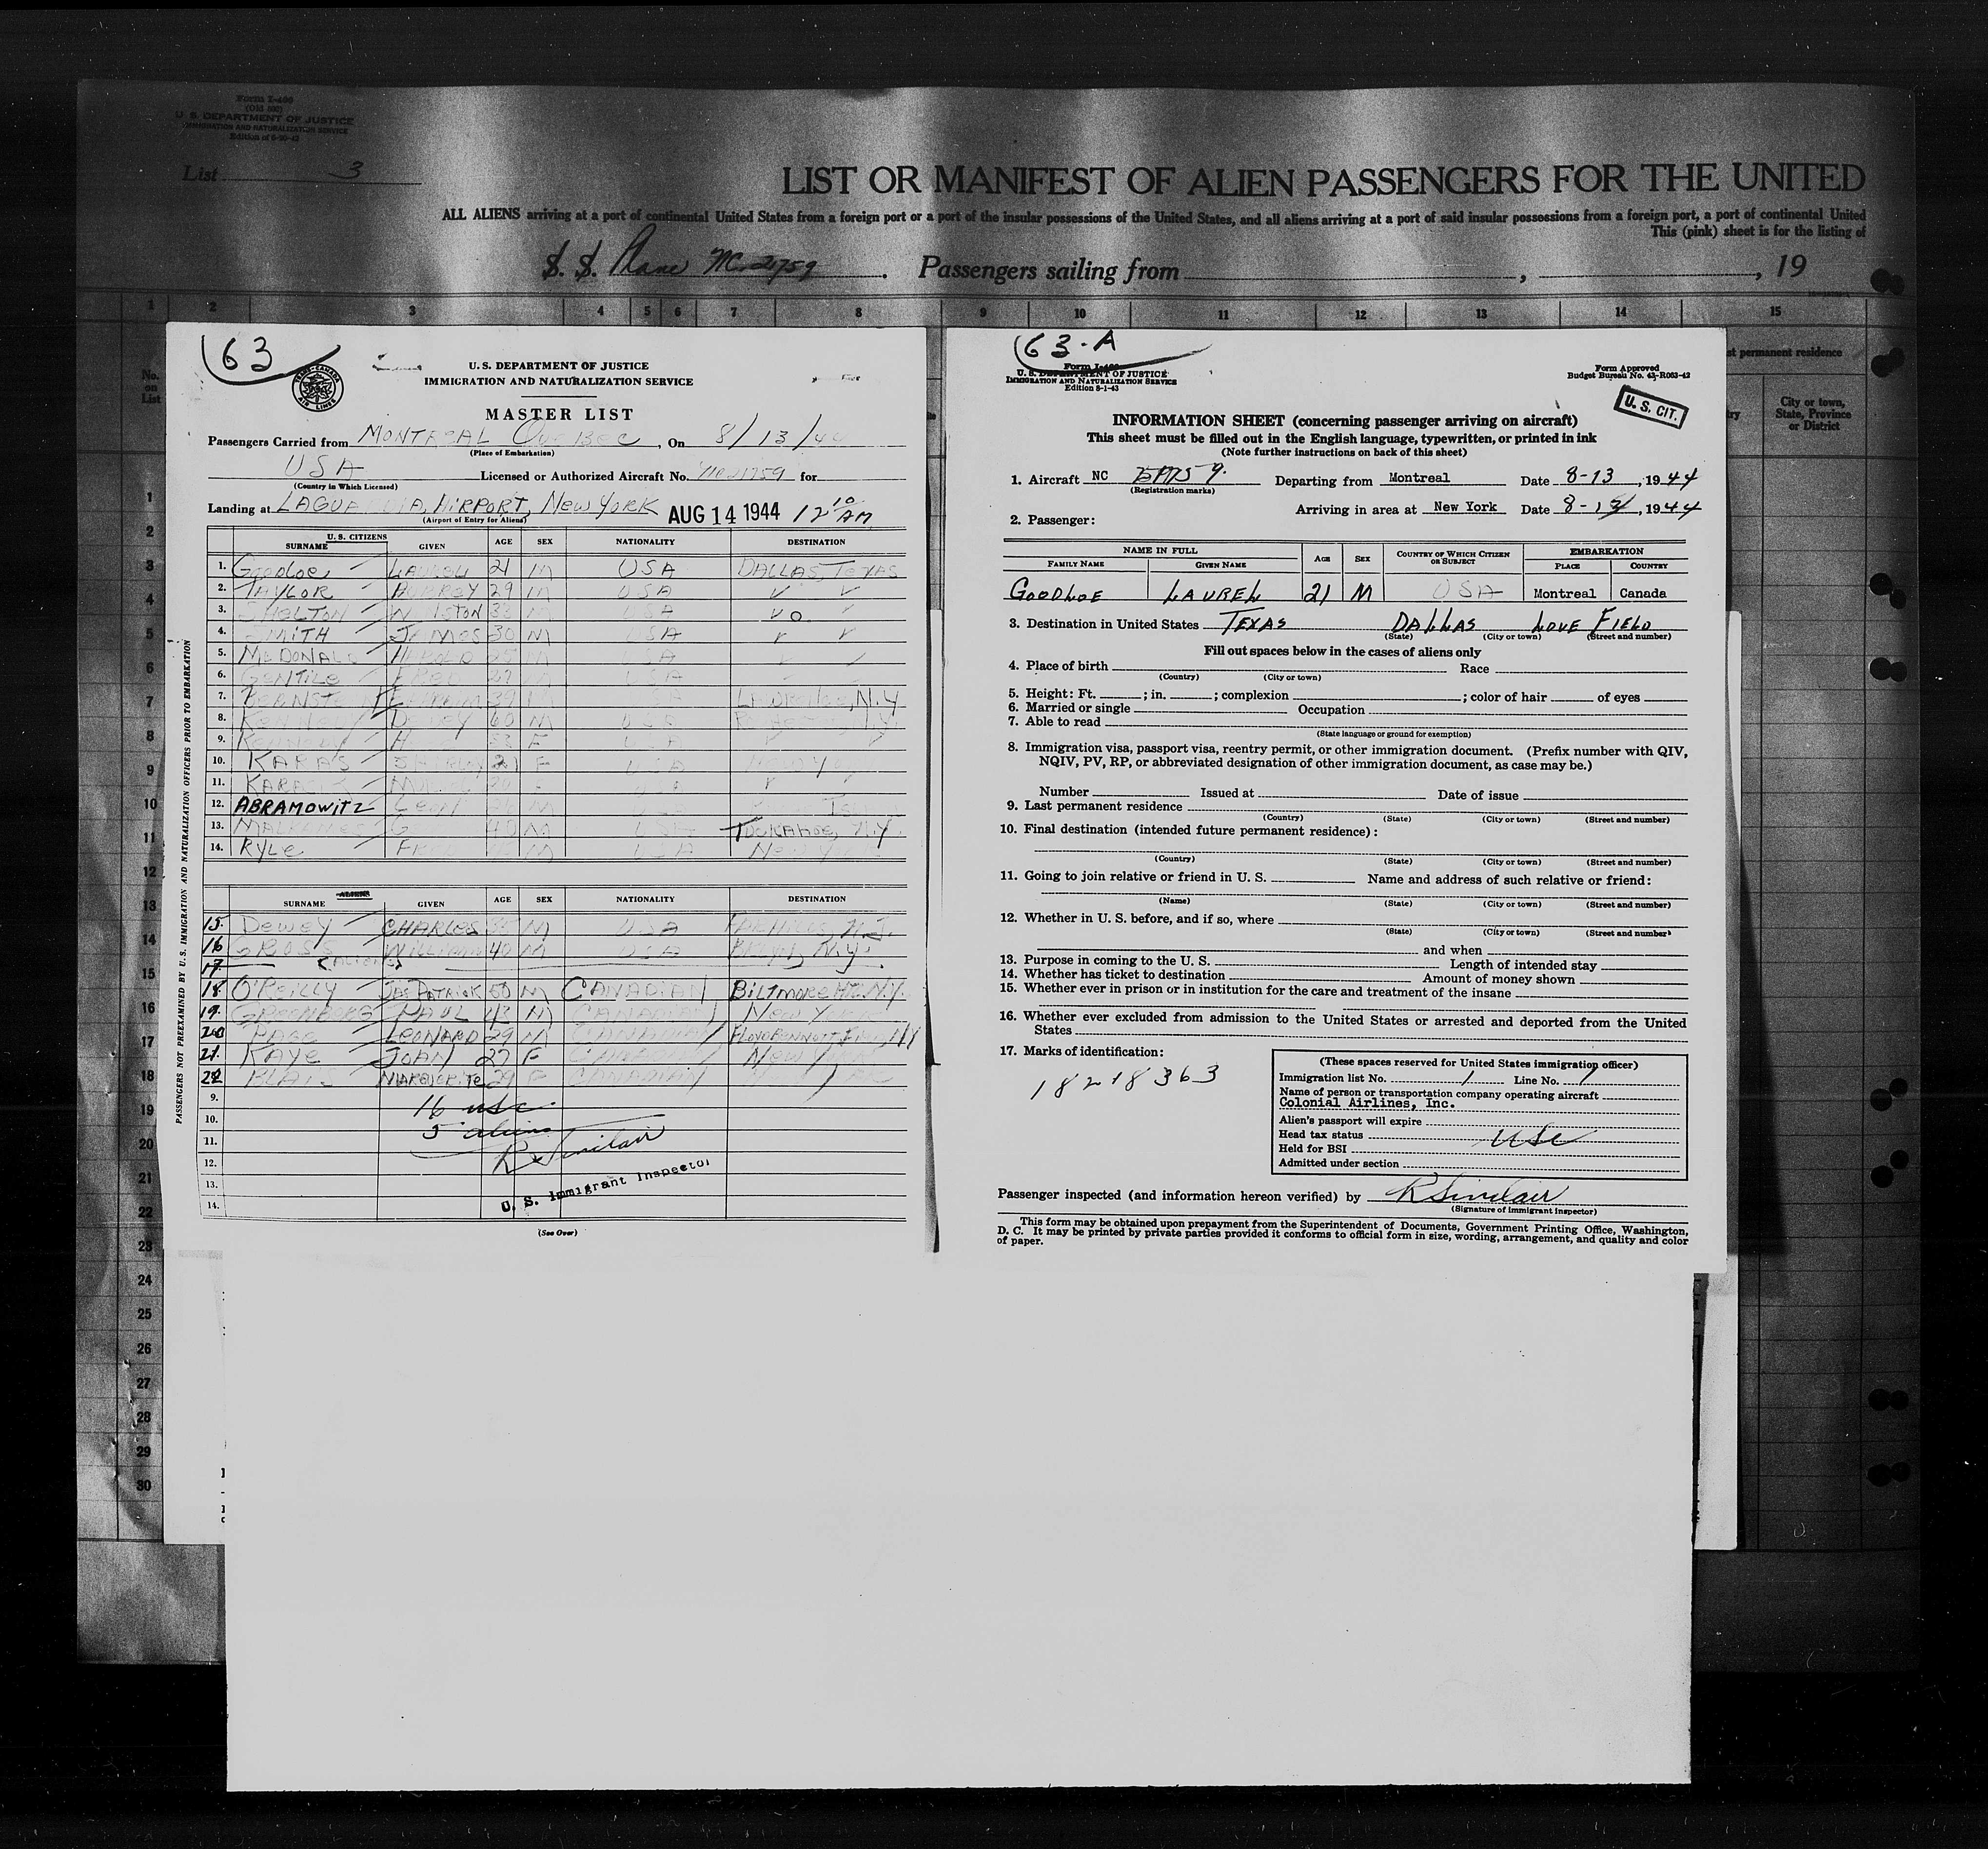 Form I-400
U. S. DEPARTMENT OF JUSTICE
IMMIGRATION AND NATURALIZATION SERVICE
Edition of
List 3
LIST OR MANIFEST OF ALIEN PASSENGERS FOR THE UNITED
ALL ALIENS arriving at a port of continental United States from a foreign port or a port of the insular possessions of the United States, and all aliens arriving at a port of said insular possessions from a foreign port, a port of continental United
This (pink) sheet is for the listing of
S. S. Plane NC 21759 . Passengers sailing from , , 19
1 2 3 4 5 6 7 8 9 10 11 12 13 14 15
No. on List
st permanent residence
City or town, State, Province or District
63
TRANS-CANADA AIR LINES
U. S. DEPARTMENT OF JUSTICE
IMMIGRATION AND NATURALIZATION SERVICE
MASTER LIST
Passengers Carried from MONTREAL QUEBEC , On 8/13/44
(Place of Embarkation)
USA Licensed or Authorized Aircraft No. 21759 for
(Country in Which Licensed)
Landing at LAGUARDIA, AIRPORT, New YORK AUG 14 1944 12 10 AM
(Airport of Entry for Aliens)
U. S. CITIZENS
SURNAME GIVEN AGE SEX NATIONALITY DESTINATION
1. Goodloe LAUREL 21 M USA DALLAS, TEXAS
2. TAYLOR AUBREY 29 M USA
3. SHELTON WINSTON 33 M USA
4. SMITH JAMES 30 M USA
5. McDONALD HAROLD 25 M USA
6. GENTILE FRED 27 M USA
7. 39 N.Y
8. 60 M USA N.Y.
9. H 53 F USA
10. KARAS SHIRLEY 21 F USA
11. F USA
12. ABRAMOWITZ Leon M
13. G 40 M USA TUCKAHOE, N.Y.
14. RYLE M USA New Y
PASSENGERS NOT PREEXAMINED BY U. S. IMMIGRATION AND NATURALIZATION OFFICERS PRIOR TO EMBARKATION
ALIENS
SURNAME GIVEN AGE SEX NATIONALITY DESTINATION
15. DEWEY CHARLES 35 M USA N.J.
16 GROSS WILLIAM 40 M USA BKLYN, N.Y.
17. (ALIENS)
18. O'REILLY JAS PATRICK 50 M CANADIAN BILTMORE HTL N.Y.
19. GREENBERG PAUL 43 M CANADIAN New Y
20 PAGE LEONARD 29 M CANADIAN
21. KAYE JOAN 27 F CANADIAN New YORK
22 BLAIS MARGUERITE 29 F CANADIAN
9. 16 usc
10. 5 aliens
11. R Sinclair
12.
13. U. S. Immigrant Inspector
14.
(See Over)
63-A
Form I-466
U. S. DEPARTMENT OF JUSTICE
IMMIGRATION AND NATURALIZATION SERVICE
Edition 8-1-43
Form Approved
Budget Bureau No. 43-R063-42
U. S. CIT.
INFORMATION SHEET (concerning passenger arriving on aircraft)
This sheet must be filled out in the English language, typewritten, or printed in ink
(Note further instructions on back of this sheet)
1. Aircraft NC Departing from Montreal Date 8-13 , 1944
(Registration marks)
Arriving in area at New York Date 8-13 , 1944
2. Passenger:
NAME IN FULL AGE SEX COUNTRY OF WHICH CITIZEN OR SUBJECT EMBARKATION
FAMILY NAME GIVEN NAME PLACE COUNTRY
GOODLOE LAUREL 21 M USA Montreal Canada
3. Destination in United States TEXAS DALLAS LOVE FIELD
(State) (City or town) (Street and number)
Fill out spaces below in the cases of aliens only
4. Place of birth Race
(Country) (City or town)
5. Height: Ft. ; in. ; complexion ; color of hair of eyes
6. Married or single Occupation
7. Able to read
(State language or ground for exemption)
8. Immigration visa, passport visa, reentry permit, or other immigration document. (Prefix number with QIV,
NQIV, PV, RP, or abbreviated designation of other immigration document, as case may be.)
Number Issued at Date of issue
9. Last permanent residence
(Country) (State) (City or town) (Street and number)
10. Final destination (intended future permanent residence):
(Country) (State) (City or town) (Street and number)
11. Going to join relative or friend in U. S. Name and address of such relative or friend:
(Name) (State) (City or town) (Street and number)
12. Whether in U. S. before, and if so, where
(State) (City or town) (Street and number)
and when
13. Purpose in coming to the U. S. Length of intended stay
14. Whether has ticket to destination Amount of money shown
15. Whether ever in prison or in institution for the care and treatment of the insane
16. Whether ever excluded from admission to the United States or arrested and deported from the United
States
17. Marks of identification:
18218363
(These spaces reserved for United States immigration officer)
Immigration list No. 1 Line No. 1
Name of person or transportation company operating aircraft
Colonial Airlines, Inc.
Alien's passport will expire
Head tax status usc
Held for BSI
Admitted under section
Passenger inspected (and information hereon verified) by R Sinclair
(Signature of immigrant inspector)
This form may be obtained upon prepayment from the Superintendent of Documents, Government Printing Office, Washington,
D. C. It may be printed by private parties provided it conforms to official form in size, wording, arrangement, and quality and color
of paper.
1
2
3
4
5
6
7
8
9
10
11
12
13
14
15
16
17
18
19
20
21
22
23
24
25
26
27
28
29
30